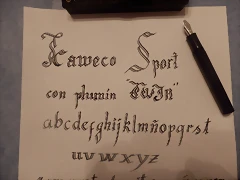 Kaweco Sport
con plumín "Twin"
abcdefghijklmnñopqrst
uvwxyz